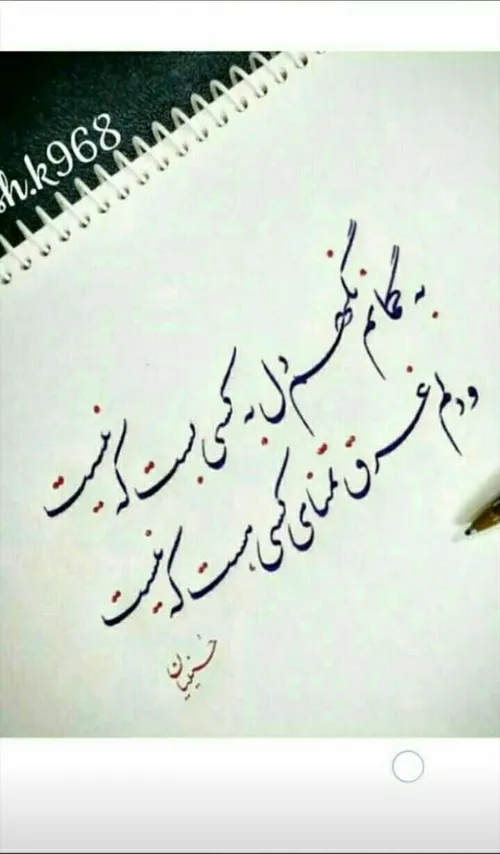 sh.k968
به گمانم نگهم دل به کسی بست که نیست
و دلم غرق تمنای کسی هست که نیست